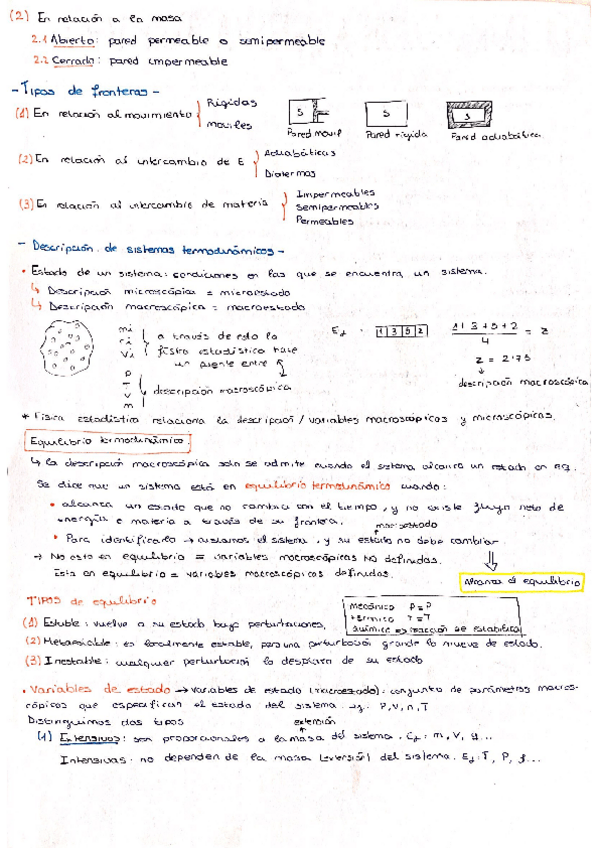 (2) En relación a la masa
2.1 Abierto: pared permeable o semipermeable
2.2 Cerrado: pared impermeable
- Tipos de fronteras -
(1) En relación al movimiento { Rígidas
móviles
S S S
Pared movil Pared rígida Pared adiabática
(2) En relación al intercambio de E { Adiabáticas
Diatermas
(3) En relación al intercambio de materia { Impermeables
Semipermeables
Permeables
- Descripción de sistemas termodinámicos -
• Estado de un sistema: condiciones en las que se encuentra un sistema.
↳ Descripción microscópica = microestado
↳ Descripción macroscópica = macroestado
mi
ri
vi
a través de esto la
física estadística hace
un puente entre
P
T
V
m
descripción macroscópica
Ej. 1 3 5 2
1+3+5+2 / 4 = z
z = 2'75
descripción macroscópica
* Física estadística relaciona la descripción / variables macroscópicas y microscópicas.
Equilibrio termodinámico
↳ la descripción macroscópica solo se admite cuando el sistema alcanza un estado en eq.
Se dice que un sistema está en equilibrio termodinámico cuando:
• alcanza un estado que no cambia con el tiempo, y no existe flujo neto de
energía e materia a través de su frontera.
macroestado
• Para identificarlo → aislamos el sistema, y su estado no debe cambiar.
→ No esta en equilibrio = variables macroscópicas no definidas.
Esta en equilibrio = variables macroscópicas definidas.
⇓
Alcanza el equilibrio
TIPOS de equilibrio
mecánico P = P
térmico T = T
químico => reacción se estabiliza
(1) Estable: vuelve a su estado bajo perturbaciones.
(2) Metaestable: es localmente estable, para una perturbación grande lo mueve de estado.
(3) Inestable: cualquier perturbación lo desplaza de su estado
• Variables de estado → variables de estado (macroestado): conjunto de parámetros macros-
cópicos que especifican el estado del sistema. ej: P, V, n, T
Distinguimos dos tipos
extensión
(1) Extensivos: son proporcionales a la masa del sistema. Ej: m, V, ...
Intensivas: no dependen de la masa (extensión) del sistema. Ej: T, P, ...